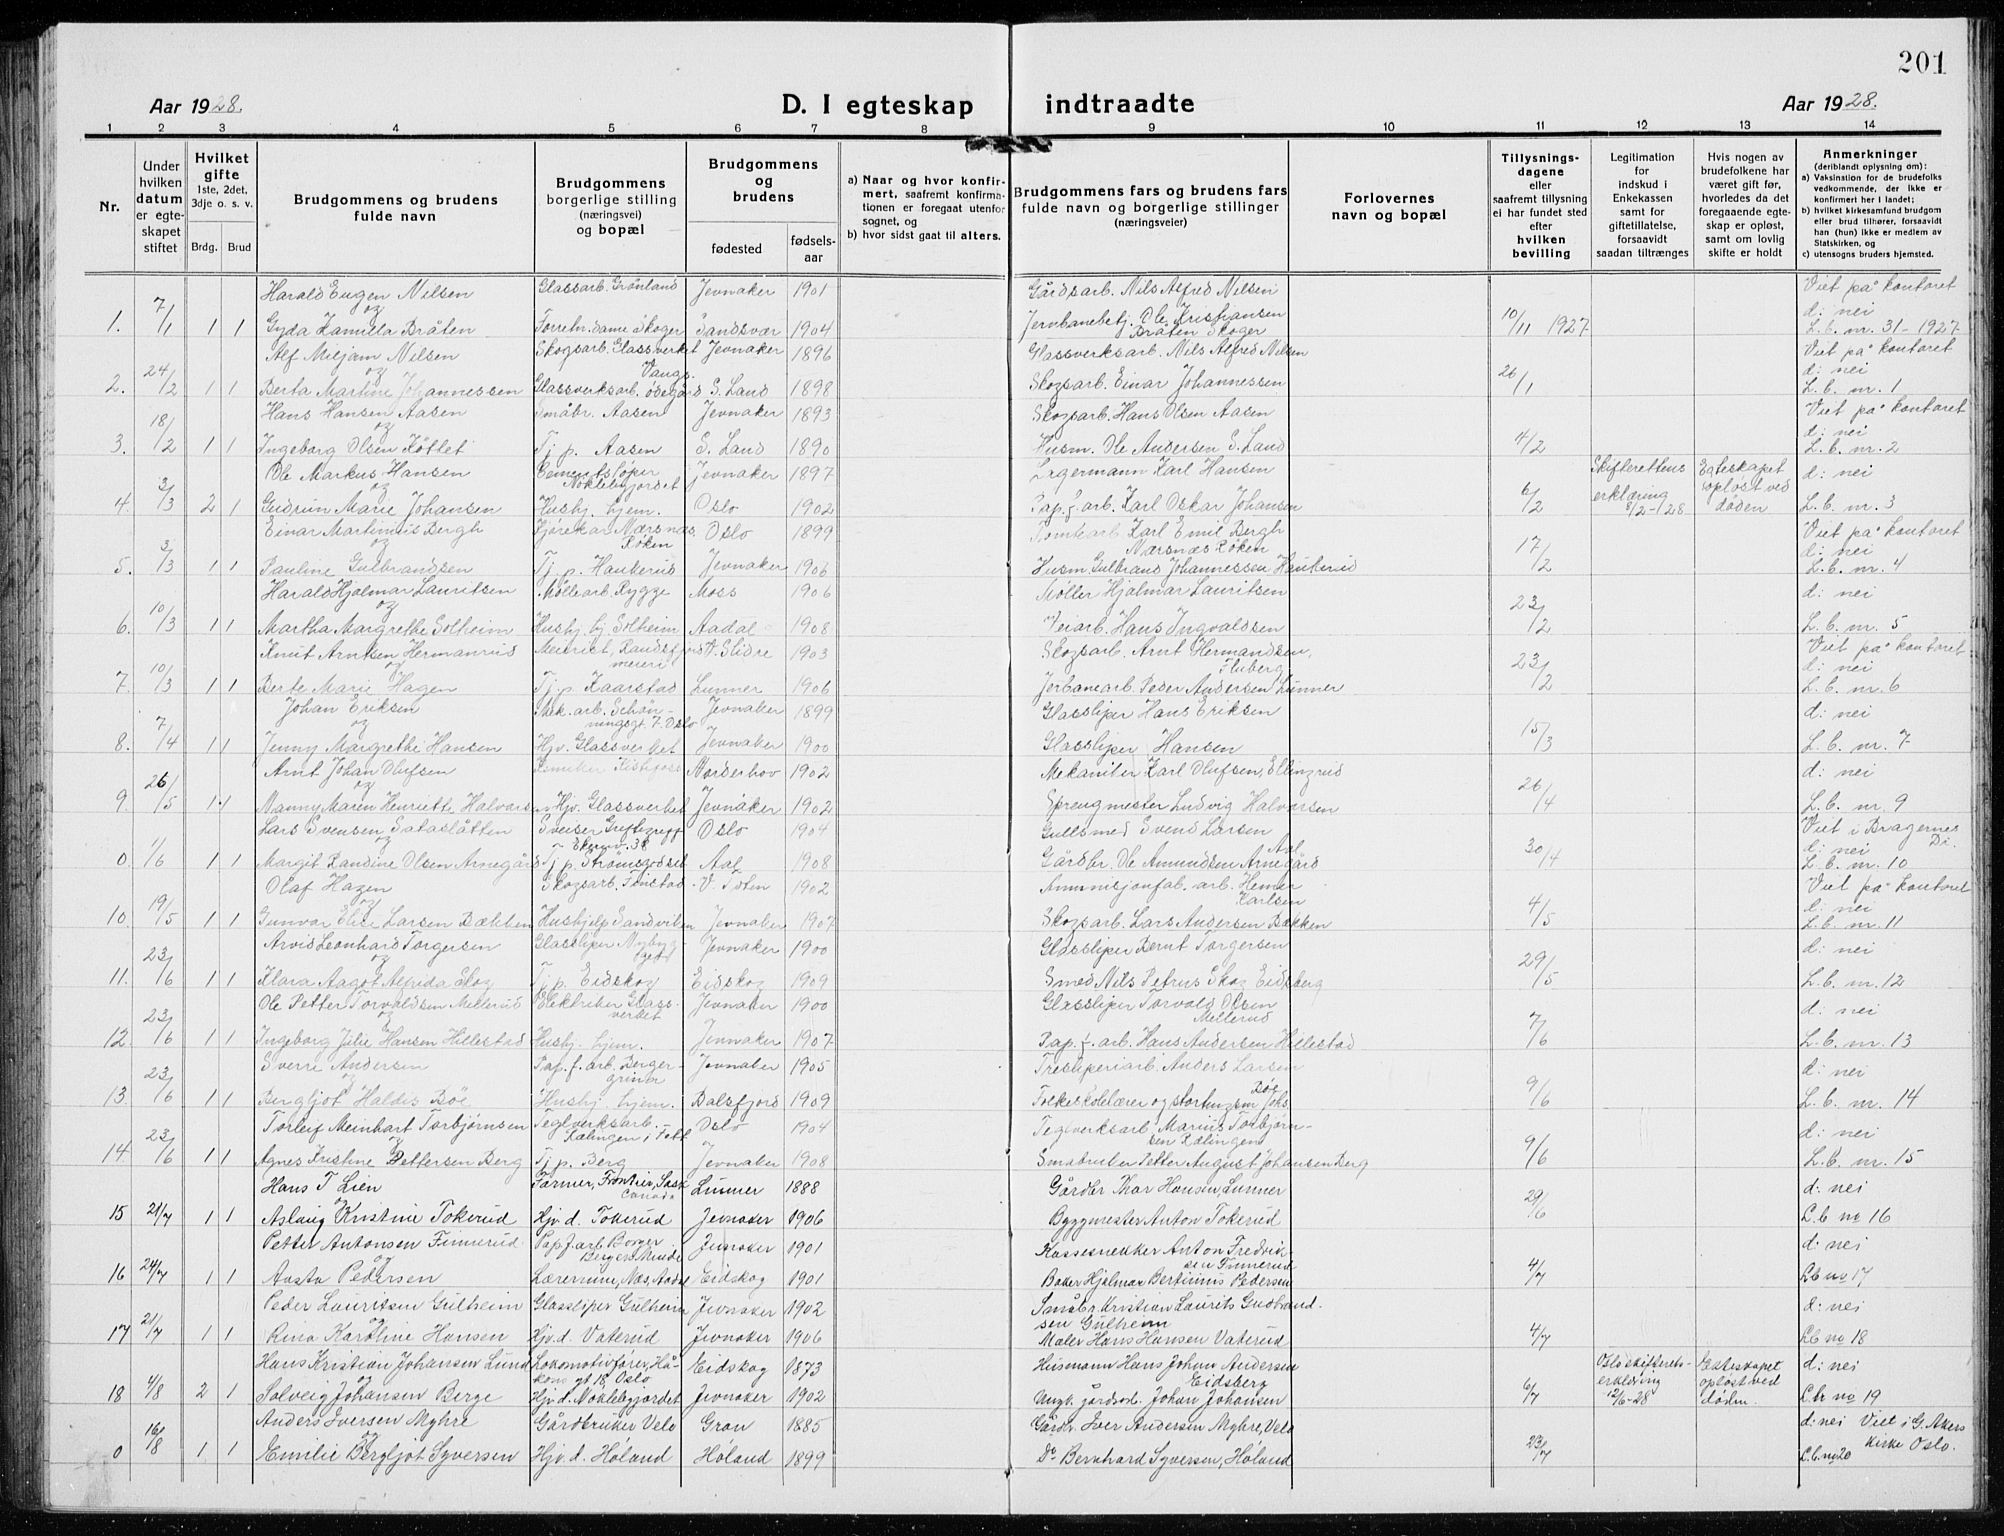 201
Aar 1928. D. I egteskap indtraadte Aar 1928.
1 2 3 4 5 6 7 8 9 10 11 12 13 14
Nr.
Under hvilken datum er egteskapet stiftet
Hvilket gifte 1ste, 2det, 3dje o. s. v.
Brdg. Brud
Brudgommens og brudens fulde navn
Brudgommens borgerlige stilling (næringsvei) og bopæl
Brudgommens og brudens
fødested fødsels-aar
a) Naar og hvor konfirmert, saafremt konfirmationen er foregaat utenfor sognet, og
b) hvor sidst gaat til alters.
Brudgommens fars og brudens fars fulde navn og borgerlige stillinger (næringsveier)
Forlovernes navn og bopæl
Tillysningsdagene eller saafremt tillysning ei har fundet sted efter hvilken bevilling
Legitimation for indskud i Enkekassen samt for giftetillatelse, forsaavidt saadan tiltrænges
Hvis nogen av brudefolkene har været gift før, hvorledes da det foregaaende egteskap er opløst, samt om lovlig skifte er holdt
Anmerkninger (deriblandt oplysning om):
a) Vaksination for de brudefolks vedkommende, der ikke er konfirmert her i landet;
b) hvilket kirkesamfund brudgom eller brud tilhører, forsaavidt han (hun) ikke er medlem av Statskirken, og
c) utensogns bruders hjemsted.
Harald Eugen Nilsen Glassarb. Grönland Jevnaker 1901 Gårdsarb. Nils Alfred Nilsen Viet på kontoret
1. 7/1 1 1 og Gyda Kamilla Bråten Forretn.dame Skoger Sandsvær 1904 Jernbanebetj. Ole Kristiansen Bråten Skoger 10/11 1927 d: nei L.b. nr. 31-1927
Alf Mirjam Nilsen Skogsarb. Glassverket Jevnaker 1896 Glassverksarb. Nils Alfred Nilsen Viet på kontoret
2. 24/2 1 1 og Berta Martine Johannessen Glassverksarb. Ødegård Vangs. S. Land 1898 Skogsarb. Einar Johannessen 26/1 d: nei L.b. nr. 1
Hans Hansen Aasen Småbr. Aasen Jevnaker 1893 Skogsarb. Hans Olsen Aasen Viet på kontoret
3. 18/2 1 1 og Ingeborg Olsen Köttet Tj. p. Aasen S. Land 1890 Husm. Ole Andersen S. Land 4/2 d: nei L.b. nr. 2
Ole Markus Hansen Nöklebygjordet Jevnaker 1897 Lagermann Karl Hansen Skifterettens erklæring 8/2-128 Egteskapet opløst ved döden d: nei
4. 3/3 2 1 og Gudrun Marie Johansen Hushj. hjem. Oslo 1902 Pap.f. arb. Karl Oskar Johansen 6/2 L.b. nr. 3
Einar Martinius Bergh Nærsnes Røken Oslo 1899 Tomtearb. Karl Emil Bergh Nærsnes Røken Viet på kontoret
5. 3/3 1 1 og Pauline Gulbrandsen Tj. p. Haukerud Jevnaker 1906 Husm. Gulbrans Johannessen Haukerud 17/2 d: nei L.b. nr. 4
Harald Hjalmar Lauritsen Möllearb. Rygge Moss 1906 Möller Hjalmar Lauritsen d: nei
6. 10/3 1 1 og Martha Margrethe Solheim Hushj. hj. Solheim Aadal 1908 Veiarb. Hans Ingvaldsen 23/2 L.b. nr. 5
Knut Arntsen Hermanrud Meierist, Randsfjord meieri V. Slidre 1903 Skogsarb. Arnt Hermandsen, Fluberg Viet på kontoret
7. 10/3 1 1 og Berte Marie Hagen Tj. p. Kaarstad Lunner 1906 Jerbanearb. Peder Andersen Lunner 23/2 d: nei L.b. nr. 6
Johan Eriksen Mek. arb. Schönningsgt. 7 Oslo Jevnaker 1899 Glassliper Hans Eriksen d: nei
8. 7/4 1 1 og Jenny Margrethe Hansen Hjv. Glassverket Jevnaker 1900 Glassliper Hansen 15/3 L.b. nr. 7
Arnt Johan Olufsen Kistefoss Norderhov 1902 Mekaniker Karl Olufsen, Ellingrud d: nei
9. 26/5 1 1 og Nanny Maren Henriette Halvorsen Hjv. Glassverket Jevnaker 1902 Sprengmester Ludvig Halvorsen 26/4 L.b. nr. 9
Lars Svensen Sataslåtten Sveiser Ekernv. 38 Oslo 1904 Gullsmed Svend Larsen Viet i Bragernes
0. 1/6 1 1 og Margit Randine Olsen Arnegård Tj. p. Strömsgodset Aal 1908 Gårdbr. Ole Amundsen Arnegård Aal 30/4 d: nei L.b. nr. 10
Olaf Hagen Skogsarb. Finstad V. Toten 1902 Ammunisjonfab. arb. Hemer Karlsen Viet på kontoret
10. 19/5 1 1 og Gunvor Elise Larsen Bækken Hushjelp Sandviken Jevnaker 1907 Skogsarb. Lars Andersen Bækken 4/5 d: nei L.b. nr. 11
Arvid Leonhard Torgersen Glassliper Nybygget Jevnaker 1900 Glassliper Bernt Torgersen d: nei
11. 23/6 1 1 og Klara Aagot Alfida Skog Tj. p. Eidskog Eidskog 1909 Smed Nils Petrus Skog Eidsberg 29/5 L.b. nr. 12
Ole Petter Torvaldsen Mellerud Elektriker Glassverket Jevnaker 1900 Glassliper Torvald Olsen Mellerud d: nei
12. 23/6 1 1 og Ingeborg Julie Hansen Hillestad Hushj. hjem. Jevnaker 1907 Pap. f. arb. Hans Andersen Hillestad 7/6 L.b. nr. 13
Sverre Andersen Pap. f. arb. Bergergrinna Jevnaker 1905 Tresliperiarb. Anders Larsen d: nei
13. 23/6 1 1 og Bergljot Haldis Böe Hushj. hjem. Balsfjord 1909 Folkeskolelærer og stortingsm Johs. Böe 9/6 L.b. nr. 14
Torleif Meinhart Torbjörnsen Teglverksarb. Rælingen i Fett Oslo 1904 Teglverksarb. Marius Torbjörnsen Rælingen d: nei
14. 23/6 1 1 og Agnes Kristine Pettersen Berg Tj. p. Berg Jevnaker 1908 Småbruker Petter August Johansen Berg 9/6 L.b. nr. 15
Hans T Lien Farmer, Frontier, Sask Canada Lunner 1888 Gårdbr Thor Hansen, Lunner d: nei
15 21/7 1 1 og Aslaug Kristine Tokerud Hjv. d. Tokerud Jevnaker 1906 Byggmester Anton Tokerud 29/6 L.b no 16
Petter Antonsen Finnerud Pap.f. arb. Borger Bergersens Minde Jevnaker 1901 Kassesnekker Anton Fredriksen Finnerud d: nei
16 24/7 1 1 og Aasta Pedersen Lærerinne, Næs, Aadal Eidskog 1901 Baker Hjalmar Bertinius Pedersen 4/7 L.b no 17
Peder Lauritsen Gulheim Glassliper Gulheim Jevnaker 1902 Småbr. Kristian Laurits Gudbrandsen Gulheim d: nei
17 21/7 1 1 og Rina Karoline Hansen Hjv. d. Vaterud Jevnaker 1906 Maler Hans Hansen Vaterud 4/7 L.b no 18
Hans Kristian Johansen Lund Lokomotivfører, Håkons gt 18, Oslo Eidskog 1873 Husmann Hans Johan Andersen Eidsberg Oslo skifterets-erklæring 12/6-28 Ekteskapet opløst ved døden. d: nei
18 4/8 2 1 og Solveig Johansen Berge Hjv. d. Nøklebygjordet Jevnaker 1902 Johan Johansen 6/7 L.b. no 19
Anders Iversen Myhre Gårdbruker Velo Gran 1885 Gårdbr. Iver Andersen Myhre, Velo d: nei Viet i G. Akers kirke Oslo.
0 16/8 1 1 og Emilie Bergljot Syversen Hjv. d. Høland Høland 1899 Do Bernhard Syversen, Høland 23/7 L.b. no 20